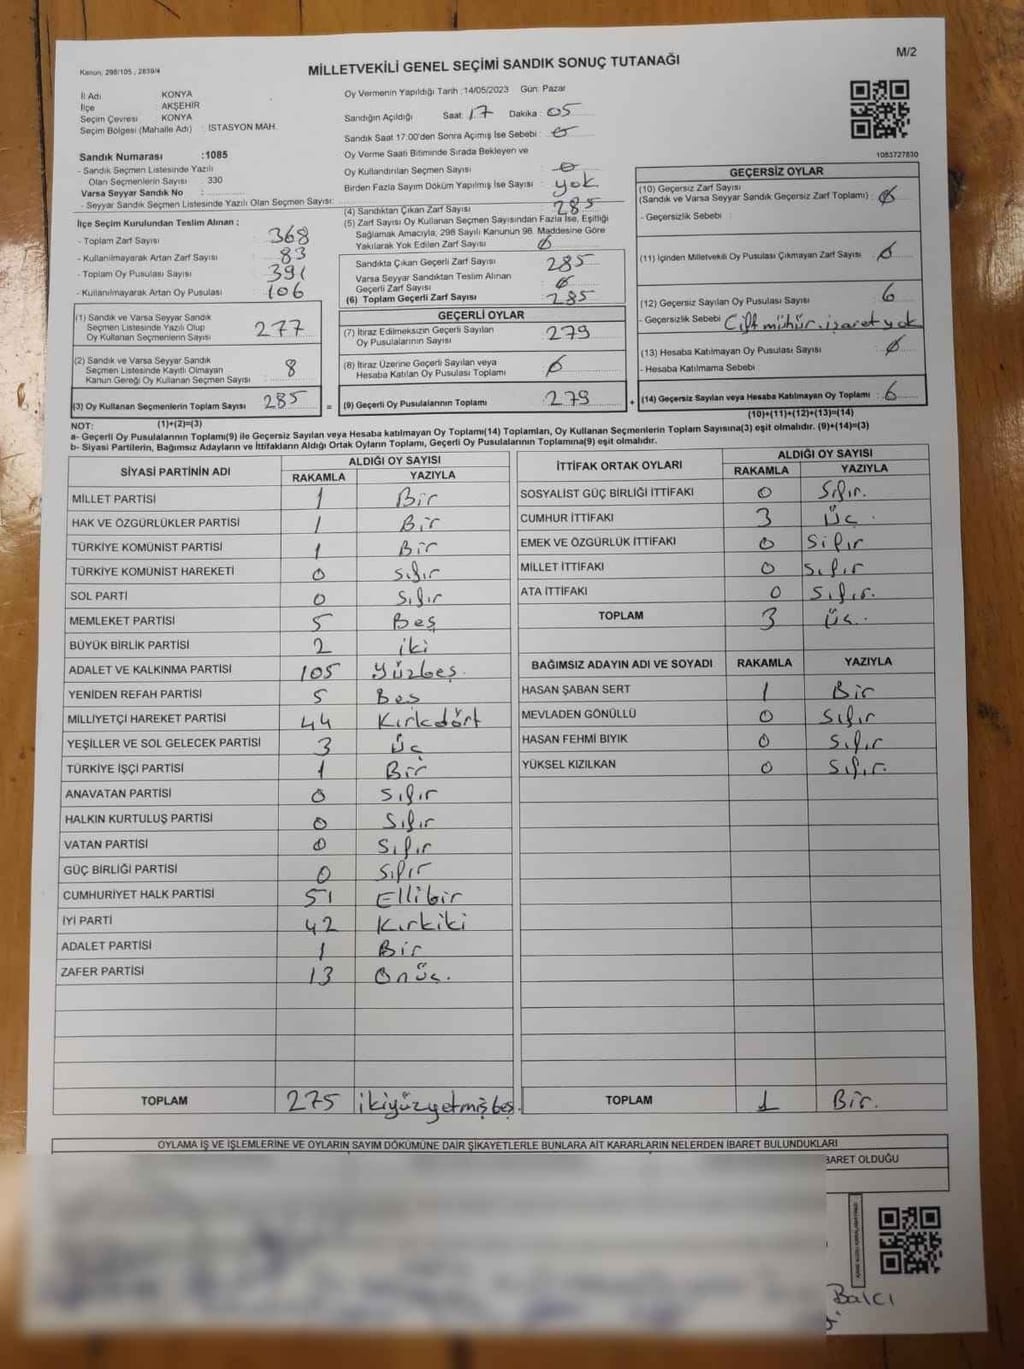 Kanun, 298/105, 2839/4
MİLLETVEKİLİ GENEL SEÇİMİ SANDIK SONUÇ TUTANAĞI
M/2
İl Adı KONYA
İlçe AKŞEHİR
Seçim Çevresi KONYA
Seçim Bölgesi (Mahalle Adı) : İSTASYON MAH.
Sandık Numarası :1085
- Sandık Seçmen Listesinde Yazılı
Olan Seçmenlerin Sayısı 330
Varsa Seyyar Sandık No :
- Seyyar Sandık Seçmen Listesinde Yazılı Olan Seçmen Sayısı:
İlçe Seçim Kurulundan Teslim Alınan :
- Toplam Zarf Sayısı 368
- Kullanılmayarak Artan Zarf Sayısı 83
- Toplam Oy Pusulası Sayısı 391
- Kullanılmayarak Artan Oy Pusulası 106
(1) Sandık ve Varsa Seyyar Sandık
Seçmen Listesinde Yazılı Olup
Oy Kullanan Seçmenlerin Sayısı 277
(2) Sandık ve Varsa Seyyar Sandık
Seçmen Listesinde Kayıtlı Olmayan
Kanun Gereği Oy Kullanan Seçmen Sayısı 8
(3) Oy Kullanan Seçmenlerin Toplam Sayısı 285
(1)+(2)=(3)
Oy Vermenin Yapıldığı Tarih :14/05/2023 Gün: Pazar
Sandığın Açıldığı Saat: 17 Dakika : 05
Sandık Saat 17:00'den Sonra Açılmış İse Sebebi : 0
Oy Verme Saati Bitiminde Sırada Bekleyen ve
Oy Kullandırılan Seçmen Sayısı : 0
Birden Fazla Sayım Döküm Yapılmış İse Sayısı : yok
(4) Sandıktan Çıkan Zarf Sayısı 285
(5) Zarf Sayısı Oy Kullanan Seçmen Sayısından Fazla İse, Eşitliği
Sağlamak Amacıyla, 298 Sayılı Kanunun 98. Maddesine Göre
Yakılarak Yok Edilen Zarf Sayısı 0
Sandıkta Çıkan Geçerli Zarf Sayısı 285
Varsa Seyyar Sandıktan Teslim Alınan
Geçerli Zarf Sayısı 0
(6) Toplam Geçerli Zarf Sayısı 285
GEÇERLİ OYLAR
(7) İtiraz Edilmeksizin Geçerli Sayılan
Oy Pusulalarının Sayısı 279
(8) İtiraz Üzerine Geçerli Sayılan veya
Hesaba Katılan Oy Pusulası Toplamı 0
= (9) Geçerli Oy Pusulalarının Toplamı 279
1083727830
GEÇERSİZ OYLAR
(10) Geçersiz Zarf Sayısı
(Sandık ve Varsa Seyyar Sandık Geçersiz Zarf Toplamı) : 0
- Geçersizlik Sebebi :
(11) İçinden Milletvekili Oy Pusulası Çıkmayan Zarf Sayısı 0
(12) Geçersiz Sayılan Oy Pusulası Sayısı 6
- Geçersizlik Sebebi Çift mühür. işaret yok
(13) Hesaba Katılmayan Oy Pusulası Sayısı 0
- Hesaba Katılmama Sebebi
+ (14) Geçersiz Sayılan veya Hesaba Katılmayan Oy Toplamı : 6
(10)+(11)+(12)+(13)=(14)
NOT:
a- Geçerli Oy Pusulalarının Toplamı(9) ile Geçersiz Sayılan veya Hesaba katılmayan Oy Toplamı(14) Toplamları, Oy Kullanan Seçmenlerin Toplam Sayısına(3) eşit olmalıdır. (9)+(14)=(3)
b- Siyasi Partilerin, Bağımsız Adayların ve İttifakların Aldığı Ortak Oyların Toplamı, Geçerli Oy Pusulalarının Toplamına(9) eşit olmalıdır.
SİYASİ PARTİNİN ADI ALDIĞI OY SAYISI
RAKAMLA YAZIYLA
MİLLET PARTİSİ 1 Bir
HAK VE ÖZGÜRLÜKLER PARTİSİ 1 Bir
TÜRKİYE KOMÜNİST PARTİSİ 1 Bir
TÜRKİYE KOMÜNİST HAREKETİ 0 Sıfır
SOL PARTİ 0 Sıfır
MEMLEKET PARTİSİ 5 Beş
BÜYÜK BİRLİK PARTİSİ 2 iki
ADALET VE KALKINMA PARTİSİ 105 Yüzbeş.
YENİDEN REFAH PARTİSİ 5 Bes
MİLLİYETÇİ HAREKET PARTİSİ 44 Kırkdört
YEŞİLLER VE SOL GELECEK PARTİSİ 3 Üç
TÜRKİYE İŞÇİ PARTİSİ 1 Bir
ANAVATAN PARTİSİ 0 Sıfır
HALKIN KURTULUŞ PARTİSİ 0 Sıfır
VATAN PARTİSİ 0 Sıfır
GÜÇ BİRLİĞİ PARTİSİ 0 Sıfır
CUMHURİYET HALK PARTİSİ 51 Ellibir
İYİ PARTİ 42 Kırkiki
ADALET PARTİSİ 1 Bir
ZAFER PARTİSİ 13 Onüç.
TOPLAM 275 ikiyüzyetmişbeş.
İTTİFAK ORTAK OYLARI ALDIĞI OY SAYISI
RAKAMLA YAZIYLA
SOSYALİST GÜÇ BİRLİĞİ İTTİFAKI 0 Sıfır.
CUMHUR İTTİFAKI 3 Üç.
EMEK VE ÖZGÜRLÜK İTTİFAKI 0 Sıfır
MİLLET İTTİFAKI 0 Sıfır
ATA İTTİFAKI 0 Sıfır.
TOPLAM 3 Üç.
BAĞIMSIZ ADAYIN ADI VE SOYADI RAKAMLA YAZIYLA
HASAN ŞABAN SERT 1 Bir
MEVLADEN GÖNÜLLÜ 0 Sıfır
HASAN FEHMİ BIYIK 0 Sıfır
YÜKSEL KIZILKAN 0 Sıfır.
TOPLAM 1 Bir.
OYLAMA İŞ VE İŞLEMLERİNE VE OYLARIN SAYIM DÖKÜMÜNE DAİR ŞİKAYETLERLE BUNLARA AİT KARARLARIN NELERDEN İBARET BULUNDUKLARI
BARET OLDUĞU
Balcı